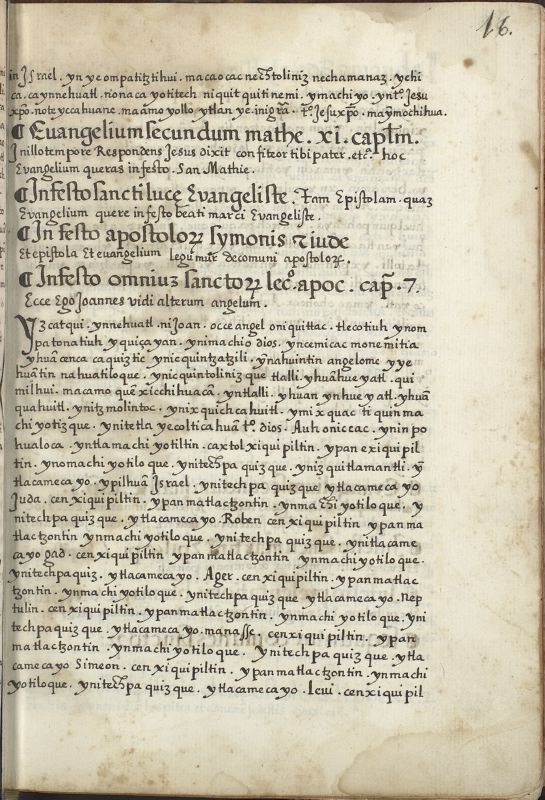 16.
in Israel. yn ye ompatitztihui. macaocac nechtoliniz nechamanaz. yehi
ca. ca ynnehuatl. nonaca yotitech niquitquitinemi. ymachiyo. yntº. Jesu
xpõ. noteyccahuane. maamo yollo ytlan ye. inigra. tº. Jesu xpõ. maymochihua.
¶ Euangelium secundum mathe. xi. captm.
In illo tempore Respondens Jesus dixit confiteor tibi pater. etc. hoc
Evangelium queras in festo. San Mathie.
¶ In festo sancti lucę Evangeliste. Tam Epistolam. quaz
Evangelium quere in festo beati marci Evangeliste.
¶ In festo apostoloꝝ symonis ⁊ iude
Et epistola Et evangelium legumtr de comuni apostoloꝝ.
¶ In festo omniuz sanctoꝝ lecº. apoc. cap. 7.
Ecce Ego Joannes vidi alterum angelum.
Yzcatqui. ynnehuatl. ni Joan. occe angel oniquittac. tlecotiuh ynom
pa tonatiuh yquiçayan. ynimachio dios. yncemicac monemitia
yhuã cenca caquiztic ynic quintzatzili. ỹnahuintin angelome yye
huãtin nahuatiloque. ynic quintolinizque tlalli. yhuãhueyatl. qui
milhui. macamo quẽ xicchihuacã. yntlalli. yhuan ynhueyatl. yhuã
quahuitl. ynitzmolintoc. ynixquich cahuitl. ymixquac tiquinma
chiyotizque. ynitetla yecolticahuã tº. dios. Auh oniccac. yninpo
hualoca. yntlamachiyotiltin. caxtolxiquipiltin. ypan exiquipil
tin. ynomachiyotiloque. ynitechpa quizque. ynizquitlamantli. ỹ
tlacamecayo. ypilhuã Israel. ynitechpa quizque ytlacamecayo
Juda. cenxiquipiltin. ypan matlactzontin. ynmachiyotiloque. y
nitechpa quizque. ytlacamecayo. Roben cenxiquipiltin ypan ma
tlactzontin ynmachiyotiloque. ynitechpa quizque. ynitlacame
cayo gad. cenxiquipiltin ypan matlactzontin ynmachiyotiloque.
ynitechpa quiz. ytlacamecayo. Ager. cenxiquipiltin. ypan matlac
tzontin. ynmachiyotiloque. ynitechpa quizque ytlacamecayo. nep
tulin. cenxiquipiltin. ypan matlactzontin. ynmachiyotiloque. yni
techpa quizque. ytlacamecayo manasse. cenxiquipiltin. ypan
matlactzontin. ynmachiyotiloque. ynitechpa quizque. ytla
camecayo Simeon. cenxiquipiltin. ypan matlactzontin. ynmachi
yotiloque. ynitechpa quizque. ytlacamecayo. Levi. cenxiquipil